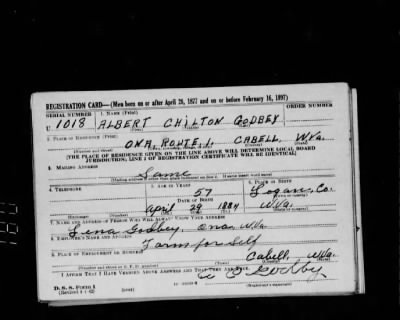 REGISTRATION CARD—(Men born on or after April 28, 1877 and on or before February 16, 1897)
SERIAL NUMBER 1. NAME (Print) ORDER NUMBER
U 1018 ALBERT CHILTON GODBEY
(First) (Middle) (Last)
2. PLACE OF RESIDENCE (Print)
ONA, ROUTE 1, CABELL, W.Va.
(Number and street) (Town, township, village, or city) (County) (State)
[THE PLACE OF RESIDENCE GIVEN ON THE LINE ABOVE WILL DETERMINE LOCAL BOARD
JURISDICTION; LINE 2 OF REGISTRATION CERTIFICATE WILL BE IDENTICAL]
3. MAILING ADDRESS
Same
4. TELEPHONE 5. AGE IN YEARS 6. PLACE OF BIRTH
57 Logan, Co.
DATE OF BIRTH (Town or county)
April 29 1884 W.Va.
(Mo.) (Day) (Yr.) (State or country)
7. NAME AND ADDRESS OF PERSON WHO WILL ALWAYS KNOW YOUR ADDRESS
Lena Godbey, Ona, W.Va.
8. EMPLOYER'S NAME AND ADDRESS
Farm for Self
9. PLACE OF EMPLOYMENT OR BUSINESS
Cabell, W.Va.
(Number and street or R. F. D. number) (Town) (County) (State)
I AFFIRM THAT I HAVE VERIFIED ABOVE ANSWERS AND THAT THEY ARE TRUE.
A C Godbey
D. S. S. Form 1
(Revised 4-1-42) (over) (Registrant's signature)